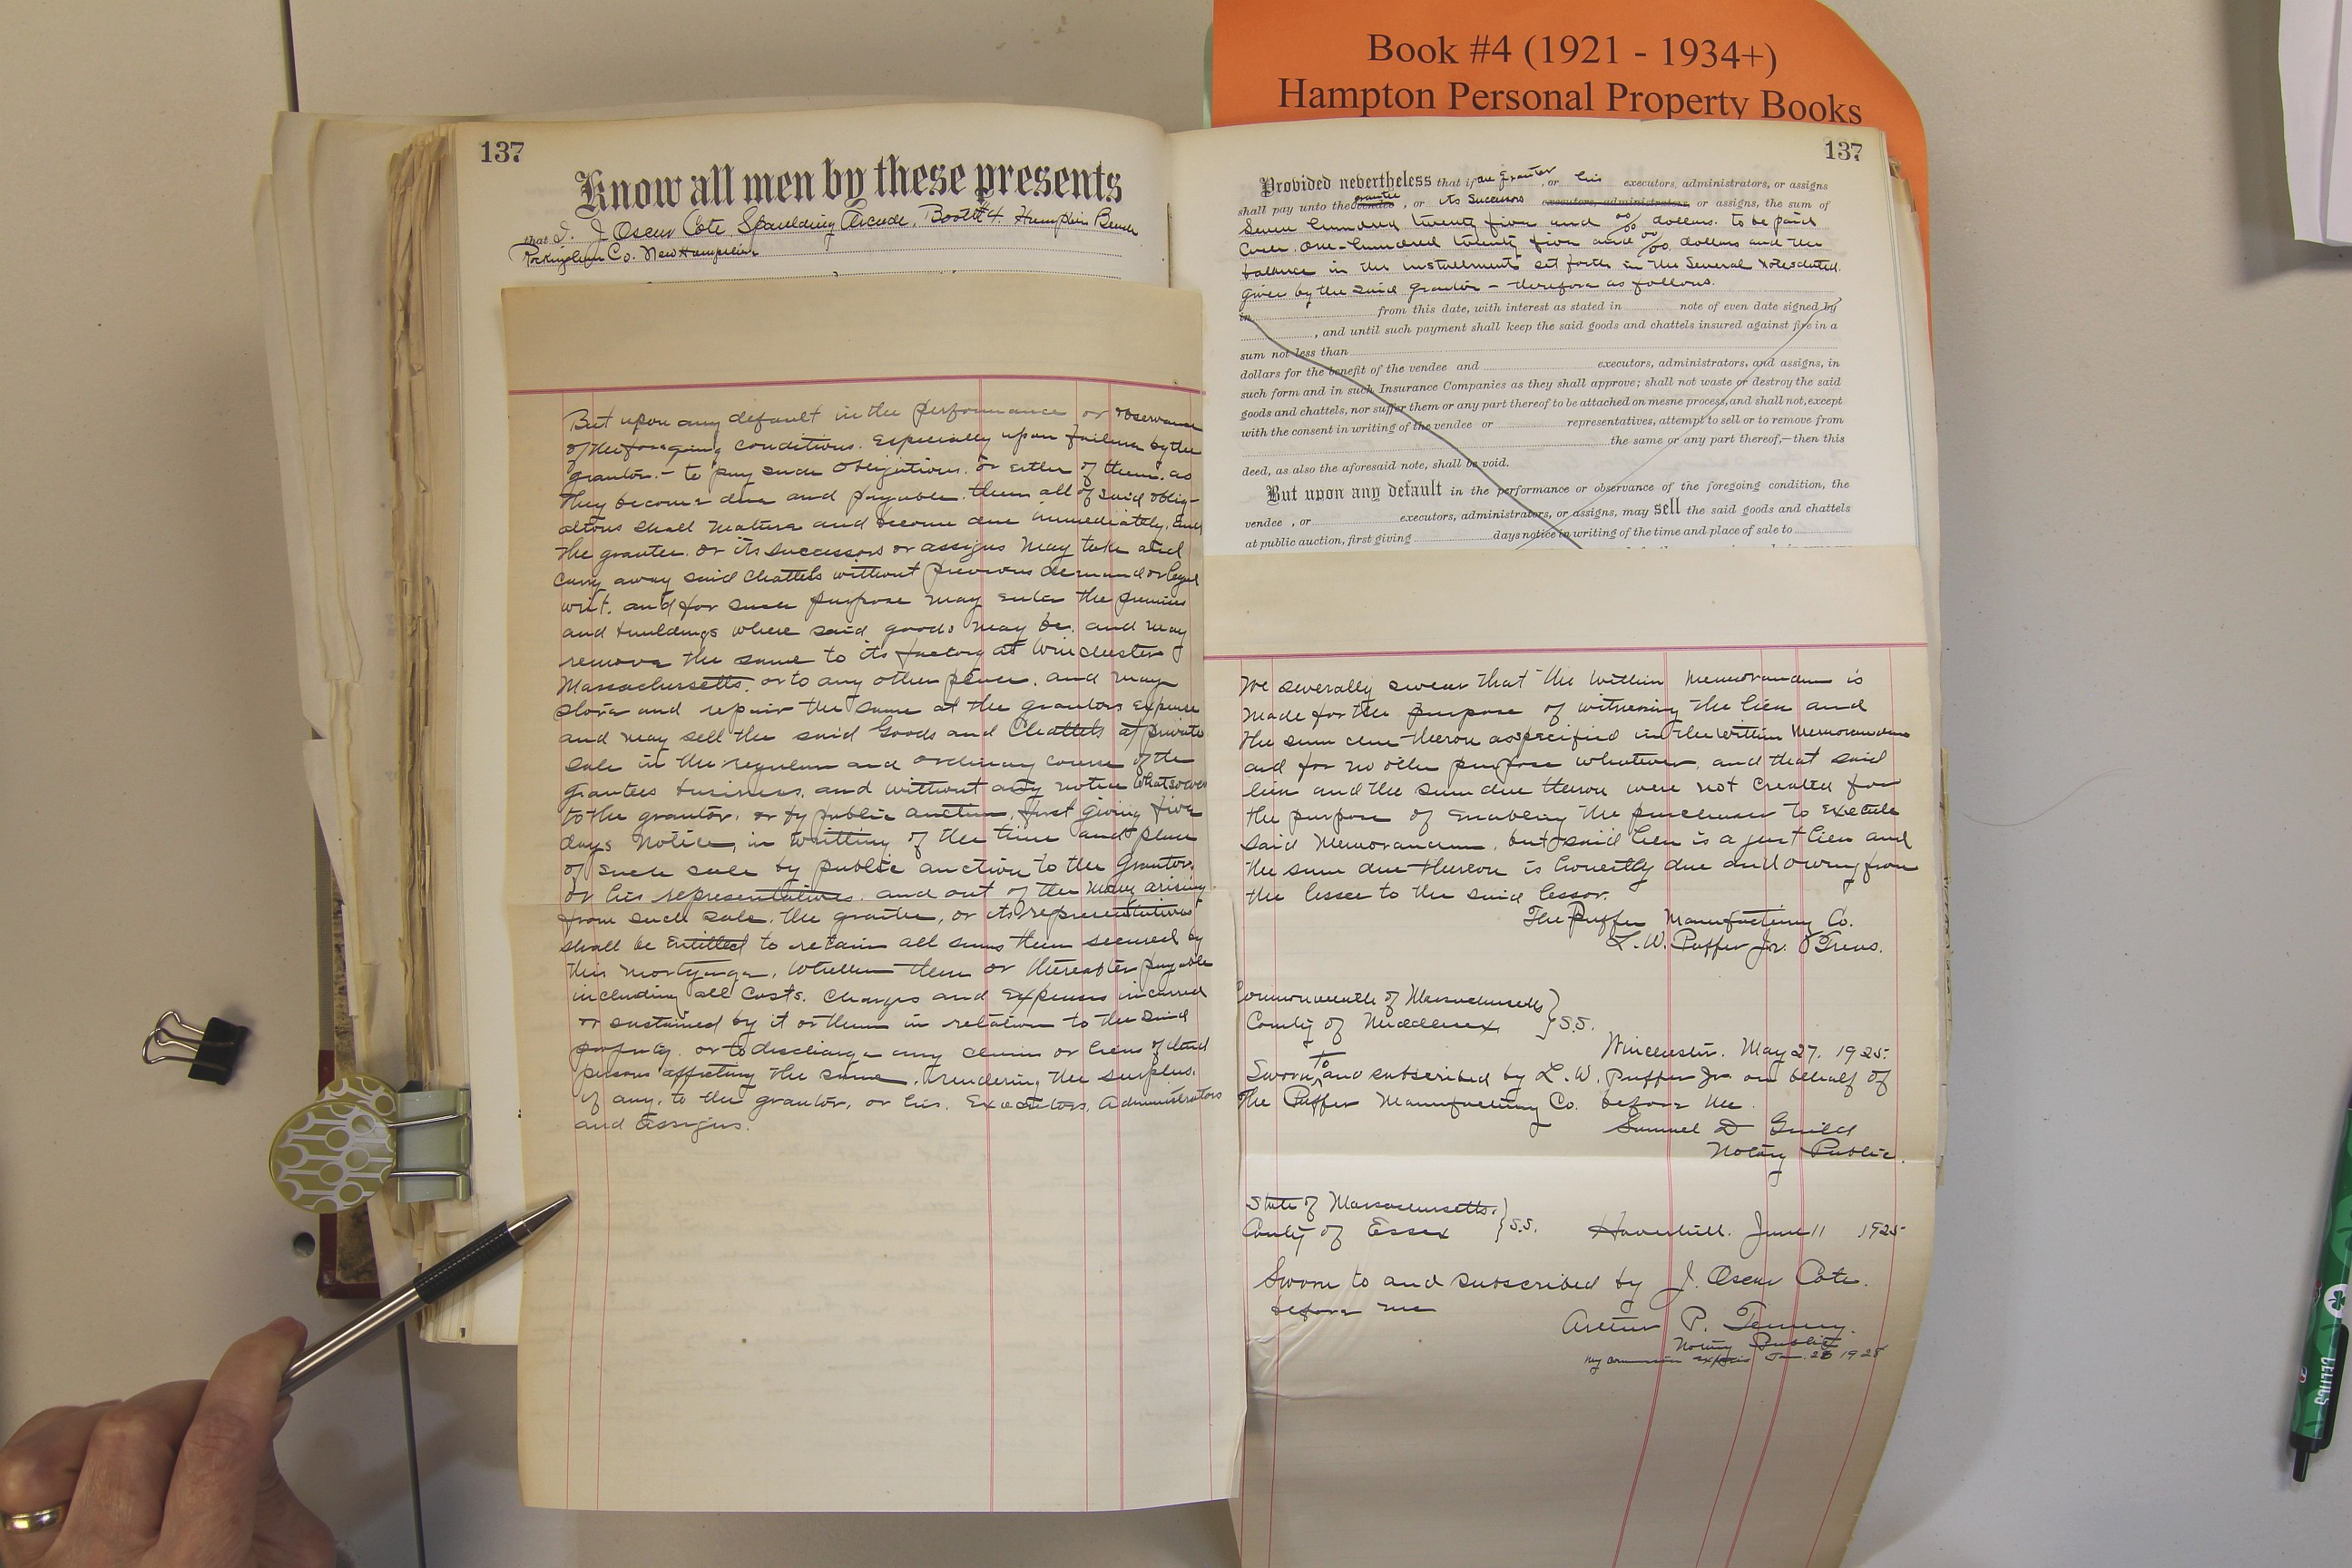 Book #4 (1921 - 1934+)
Hampton Personal Property Books
137
Know all men by these presents
that I, J. Oscar Cote Spaulding Arcade, Booth #4. Hampton Beach
Rockingham Co. New Hampshire
But upon any default in the performance or observance
of the foregoing conditions. Especially upon failure by the
grantor. - to pay such obligations. or either of them. as
they become due and payable. then all of said oblig-
ations shall mature and become due immediately. And
the grantee. or its successors or assigns may take and
carry away said chattels without previous demand or legal
writ. and for such purpose may enter the premises
and buildings where said goods may be. and may
remove the same to its factory at Winchester
Massachusetts. or to any other place. and may
store and repair the same at the grantors expense
and may sell the said Goods and Chattels at private
sale in the regular and ordinary course of the
grantees business. and without any notice whatsoever
to the grantor. or by public auction, first giving five
days Notice, in writting of the time and place
of such sale by public auction to the Grantor.
or his representatives. and out of the money arising
from such sale. the grantee, or its representatives
shall be Entitled to retain all sums then secured by
this mortgage, Whether then or thereafter payable
including all Costs. Charges and Expenses incurred
or sustained by it or them in relation to the said
property. or to discharge any claim or liens of third
persons affecting the same. rendering the surplus.
if any, to the grantor, or his. Executors. Administrators
and Assigns.
137
Provided nevertheless that if the Grantor, or his executors, administrators, or assigns
shall pay unto the vendee grantee, or its Successors executors, administrators, or assigns, the sum of
Seven hundred twenty five and 00/00 dollars. to be paid
Cash. One-hundred twenty five and 00/00 dollars and the
balance in the installments set forth in the Several Notes dated.
given by the said grantor - therefore as follows.
in from this date, with interest as stated in note of even date signed by
, and until such payment shall keep the said goods and chattels insured against fire in a
sum not less than
dollars for the benefit of the vendee and executors, administrators, and assigns, in
such form and in such Insurance Companies as they shall approve; shall not waste or destroy the said
goods and chattels, nor suffer them or any part thereof to be attached on mesne process, and shall not, except
with the consent in writing of the vendee or representatives, attempt to sell or to remove from
the same or any part thereof,—then this
deed, as also the aforesaid note, shall be void.
But upon any default in the performance or observance of the foregoing condition, the
vendee , or executors, administrators, or assigns, may sell the said goods and chattels
at public auction, first giving days notice in writing of the time and place of sale to
We severally swear that the Within Memorandum is
Made for the purpose of witnessing the lien and
the sum due thereon as specified in the Within Memorandum
and for no other purpose whatever, and that said
lien and the sum due thereon were not Created for
the purpose of enabling the purchaser to Execute
said Memorandum, but said lien is a just lien and
the sum due thereon is honestly due and owing from
the lessee to the said lessor.
The Puffer Manufacturing Co.
L. W. Puffer Jr. Treas.
Commonwealth of Massachusetts } S.S.
County of Middlesex
Winchester. May 27. 1925.
Sworn to and subscribed by L. W. Puffer Jr. on behalf of
The Puffer Manufacturing Co. before Me.
Samuel D Guild
Notary Public.
State of Massachusetts. } S.S.
County of Essex Haverhill. June 11 1925
Sworn to and subscribed by J. Oscar Cote.
before me
Arthur P. Tenney.
Notary Public
My commission expires Jan. 28 1928